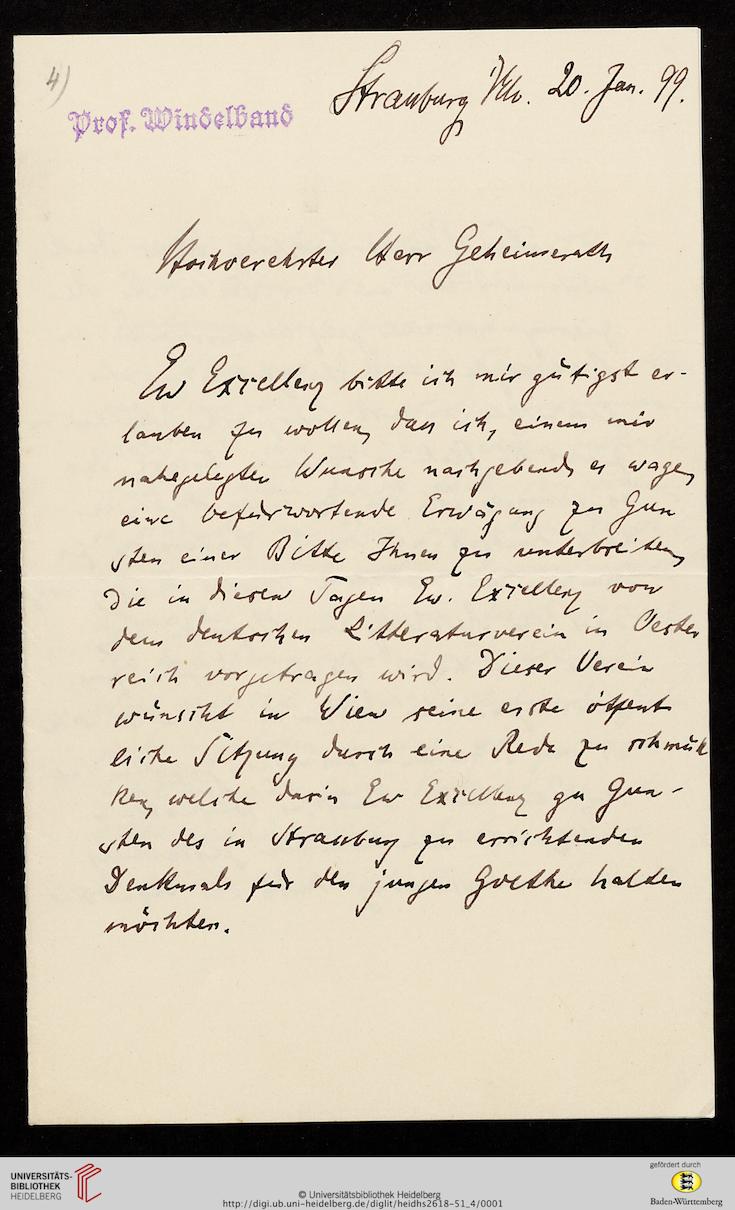 4)
Prof. Windelband
Strassburg i/Els. 20. Jan. 99.
Hochverehrter Herr Geheimerath
Ew Excellenz bitte ich mir gütigst er-
lauben zu wollen, dass ich, einem mir
nahegelegten Wunsche nachgebend, es wage,
eine befürwortende Erwägung zu Gun
sten einer Bitte Ihnen zu unterbreiten,
die in diesen Tagen Ew. Excellenz von
dem deutschen Litteraturverein in Oester
reich vorgetragen wird. Dieser Verein
wünscht in Wien seine erste öffent
liche Sitzung durch eine Rede zu schmük
ken, welche darin Ew Excellenz zu Gun-
sten des in Strassburg zu errichtenden
Denkmals für den jungen Goethe halten
möchten.
UNIVERSITÄTS-
BIBLIOTHEK
HEIDELBERG
© Universitätsbibliothek Heidelberg
http://digi.ub.uni-heidelberg.de/diglit/heidhs2618-51_4/0001
gefördert durch
Baden-Württemberg